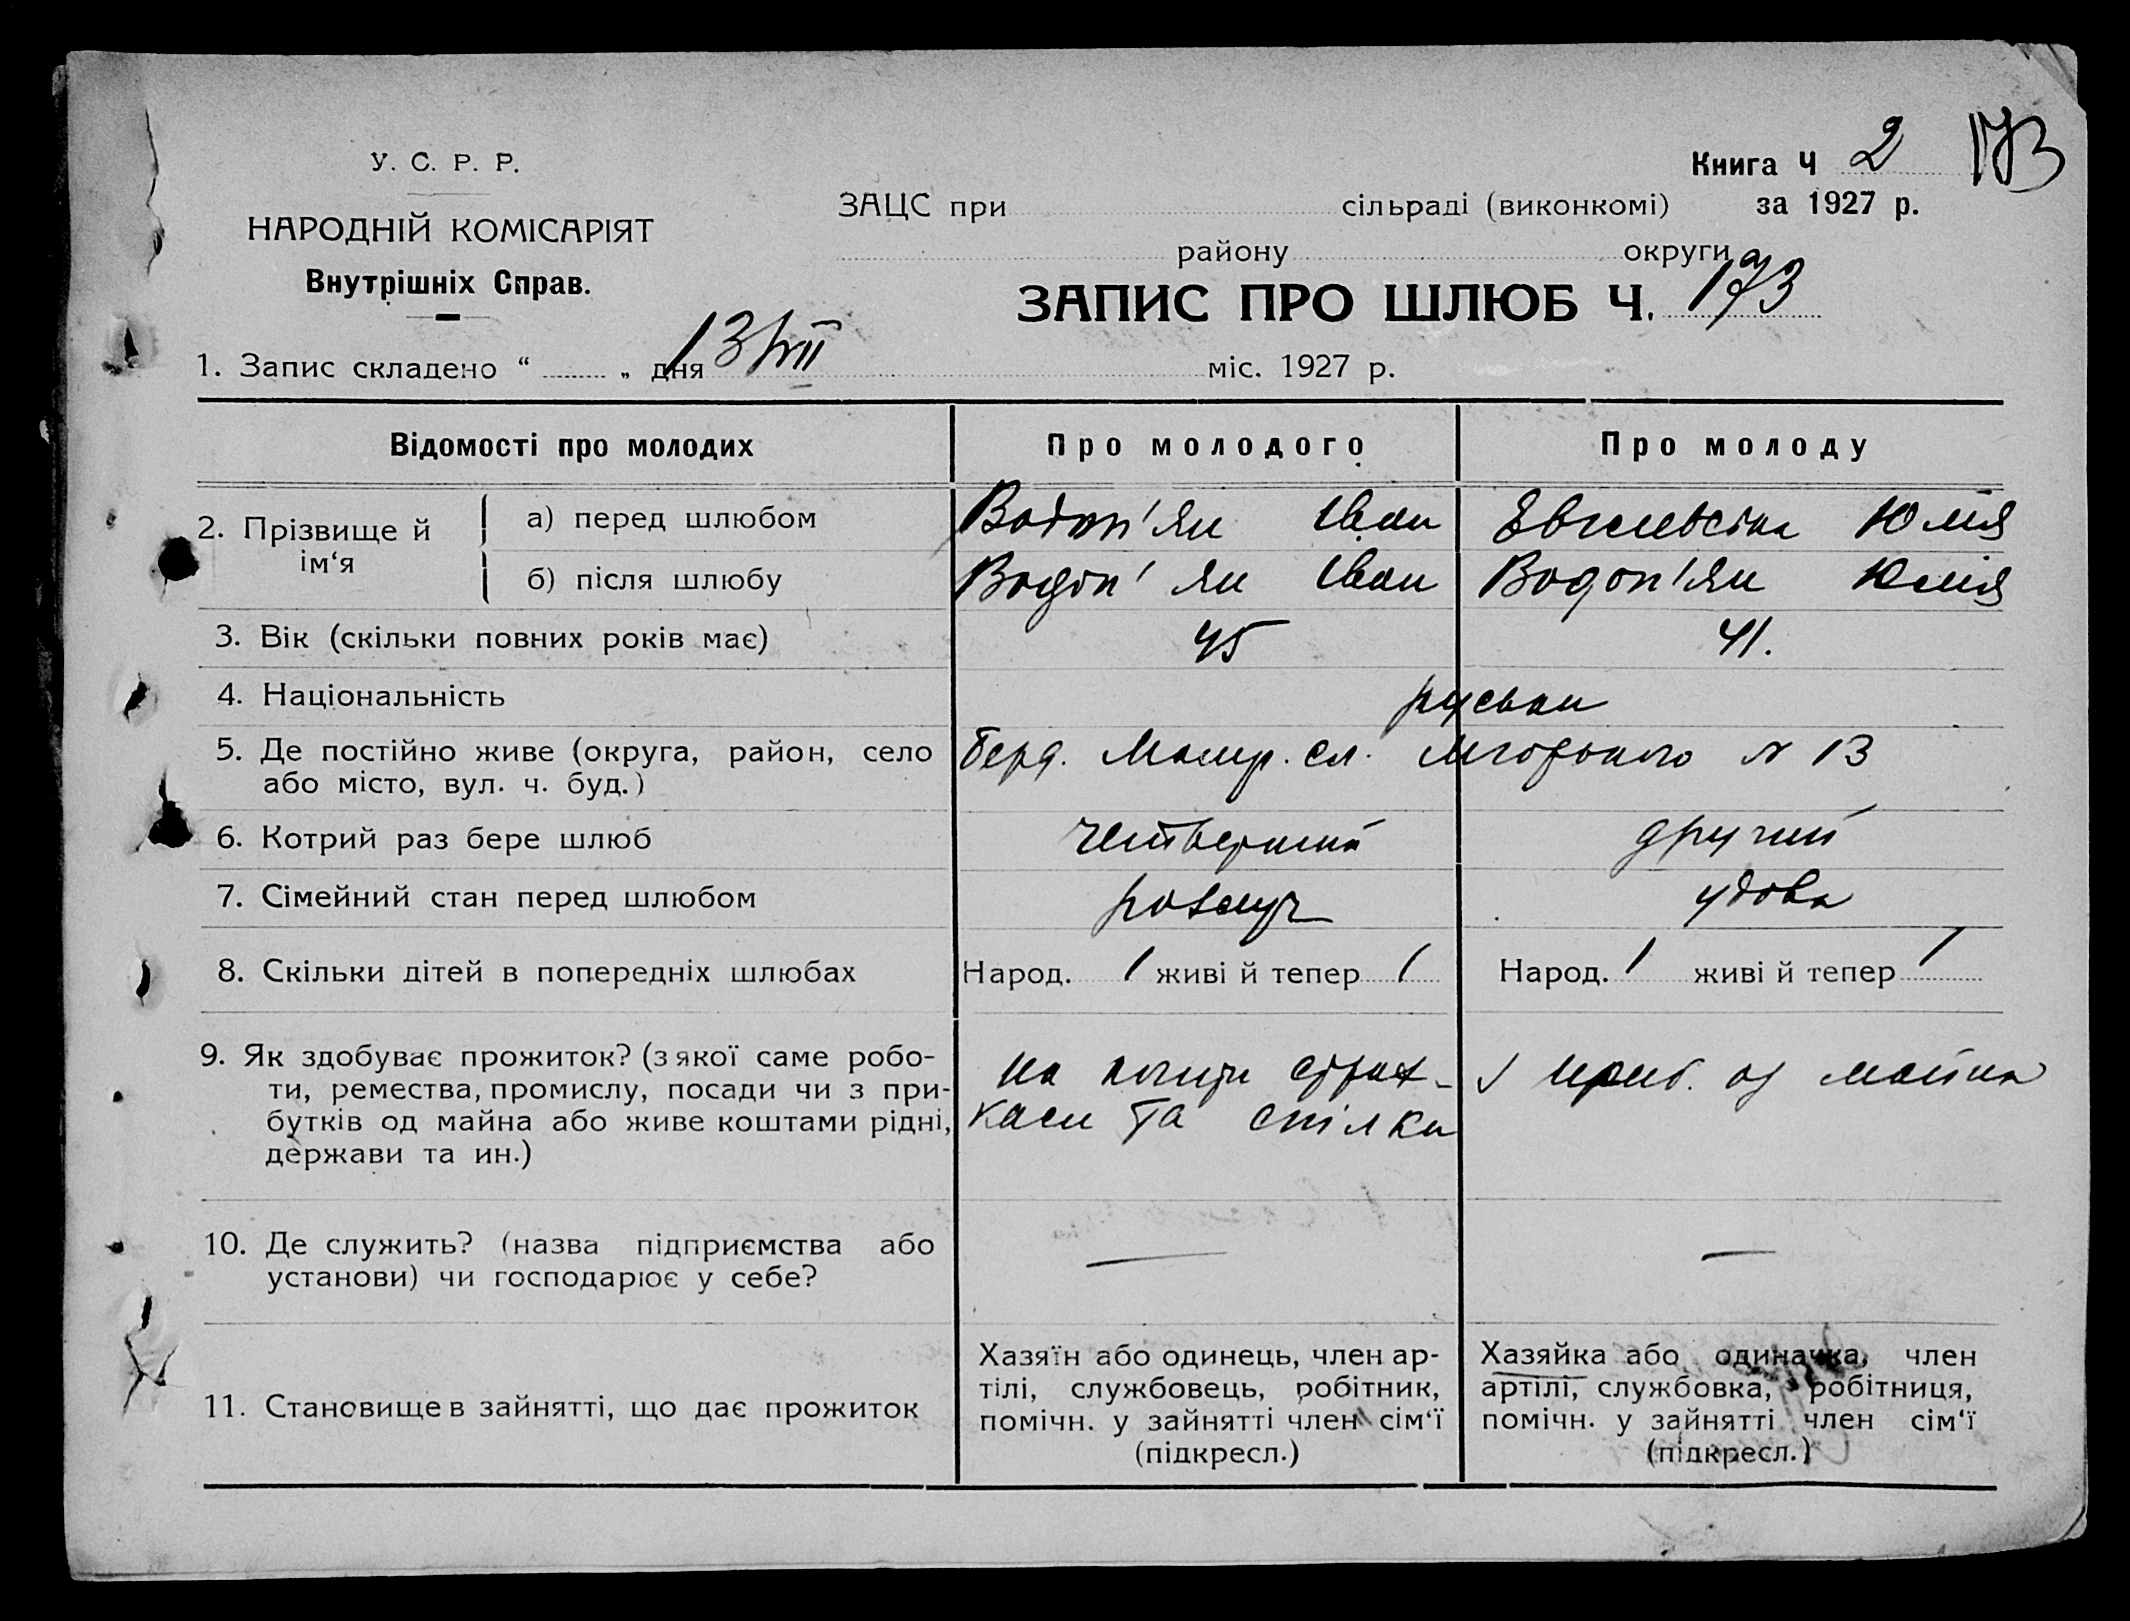 Книга Ч 2 173
У. С. Р. Р.
ЗАЦС при сільраді (виконкомі) за 1927 р.
НАРОДНІЙ КОМІСАРІЯТ
району округи
Внутрішніх Справ.
ЗАПИС ПРО ШЛЮБ Ч. 173
1. Запис складено “ „ дня 13/VII міс. 1927 р.
Відомості про молодих Про молодого Про молоду
2. Прізвище й ім‘я
а) перед шлюбом Водоп'ян Іван Юлія
б) після шлюбу Водоп'ян Іван Водоп'ян Юлія
3. Вік (скільки повних років має) 45 41.
4. Національність руськи
5. Де постійно живе (округа, район, село
або місто, вул. ч. буд.) Берд. сл. N 13
6. Котрий раз бере шлюб четвертий другий
7. Сімейний стан перед шлюбом розлуч удова
8. Скільки дітей в попередніх шлюбах Народ. 1 живі й тепер 1 Народ. 1 живі й тепер 1
9. Як здобуває прожиток? (з якої саме робо-
ти, ремества, промислу, посади чи з при-
бутків од майна або живе коштами рідні,
держави та ин.)
на кошти страх-
каси та спілки
з приб. од майна
10. Де служить? (назва підприємства або
установи) чи господарює у себе? — —
11. Становище в зайнятті, що дає прожиток
Хазяїн або одинець, член ар-
тілі, службовець, робітник,
помічн. у зайнятті член сім‘ї
(підкресл.)
Хазяйка або одиначка, член
артілі, службовка, робітниця,
помічн. у зайнятті член сім‘ї
(підкресл.)